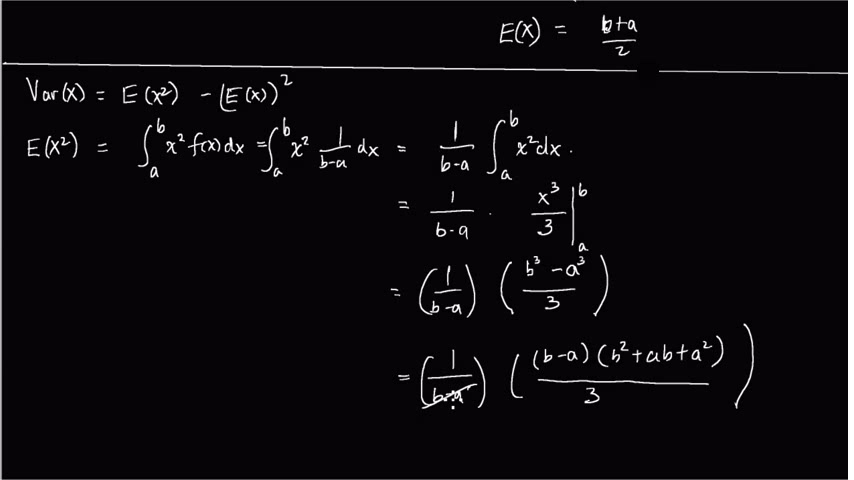 E(X) = b+a/2
Var(x) = E(x²) - (E(x))²
E(X²) = ∫_a^b x² f(x)dx = ∫_a^b x² 1/(b-a) dx = 1/(b-a) ∫_a^b x²dx.
= 1/(b-a) · x³/3 |_a^b
= (1/(b-a)) (b³-a³/3)
= (1/(b-a)) ((b-a)(b²+ab+a²)/3)